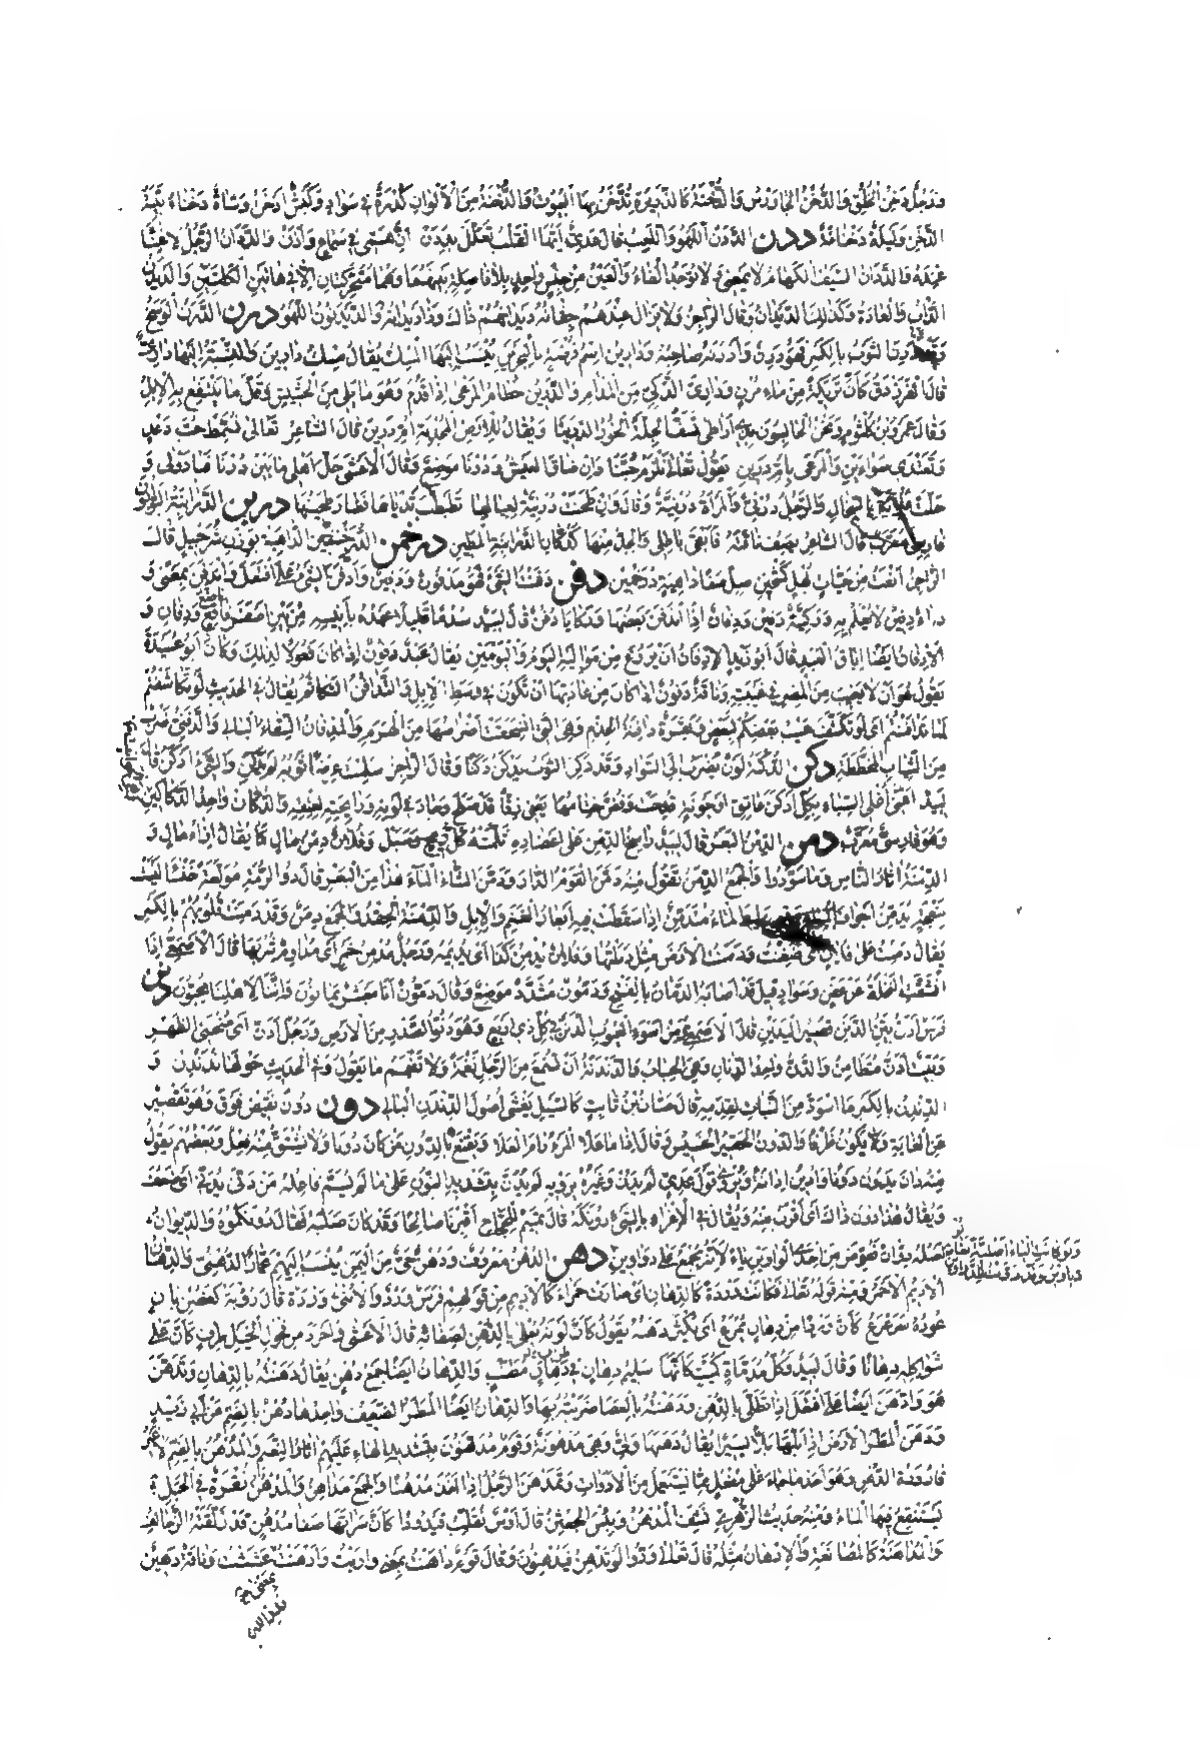 ورجل دخن الخلق والدخن الجاورس والدخنة كالذريرة تدخن بها البيوت والدخنة من الألوان كدرة في سواد وكبش أدخن وشاة دخناء بينة
الدخن وليلة دخنانة ددن الددن اللهو واللعب قال عدي أيها القلب تعلل بددن إن همي في سماع وأذن والددان الرجل لا غناء
عنده والددان السيف الكهام لا يمضي ولا توجد الفاء والعين من جنس واحد بلا فاصلة بينهما وهما متحركتان إلا في هاتين الكلمتين والديدن
الدأب والعادة وكذلك الديدان وقال الراجز ولا يزال عندهم حفانه ديدانهم ذاك وذا ديدانه والديدبون اللهو درن الدرن الوسخ
وقد درن الثوب بالكسر فهو درن وأدرنه صاحبه ودارين اسم فرضة بالبحرين ينسب إليها المسك يقال مسك دارين والنسبة إليها داري
قال الفرزدق كأن تريكة من ماء مزن وداري الذكي من المدام والدرين حطام المرعى إذا قدم وهو ما بلي من الحشيش وقل ما ينتفع به الإبل
وقال عمرو بن كلثوم ونحن الحابسون بذي أراطى تسف الجلة الخور الدرينا ويقال للأرض المجدبة أم درين قال الشاعر تعالي نسمط حب دعد
ونغتدي سواءين والمرعى بأم درين يقول تعالي نلزم حبنا وإن ضاق العيش ودرنا موضع وقال الأعشى حل أهلي ما بين درنا فبادولى و
حلت علوية بالسخال والرجل درني والمرأة درنية وقال وإن طحنت درنية لعيالها تطبطب ثدياها فطار طحينها دربن الدرابنة البوابون
فارسي معرب قال الشاعر يصف ناقته فأبقى باطلي والجد منها كدكان الدرابنة المطين درخمن الدرخمين الداهية بوزن شرحبيل قال
الراجز أنعت من حيات بهل كشحين صل صفا داهية درخمين دفن دفنت الشيء فهو مدفون ودفين وادفن الشيء على افتعل واندفن بمعنى و
داء دفين لا يعلم به وركية دفين ودفان إذا اندفن بعضها وركايا دفن قال لبيد سدما قليلا عهده بأنيسه من بين أصفر ناصع ودفان و
الادفان أيضا إباق العبد قال أبو زيد الادفان أن يروغ من مواليه اليوم واليومين يقال عبد دفون إذا كان فعولا لذلك وكان أبو عبيدة
يقول هو أن لا يغيب من المصر في غيبته وناقة دفون إذا كان من عادتها أن تكون في وسط الإبل والتدافن التكاتم يقال في الحديث لو تكاشفتم
لما تدافنتم أي لو تكشف عيب بعضكم لبعض وبقرة دافنة الجذم وهي التي انسحقت أضراسها من الهرم والمدفان السقاء البالي والدفني ضرب
من الثياب المخططة دكن الدكنة لون يضرب إلى السواد وقد دكن الثوب يدكن دكنا وقال الراجز والشيء أدكن قال
لبيد أغلي السباء بكل أدكن عاتق أو جونة قدحت وفض ختامها يعني زقا قد صلح وجاد في لونه ورائحته لعتقه والدكان واحد الدكاكين
وهو فارسي معرب دمن الدمن البعر قال لبيد راسخ الدمن على أعضاده ثلمته كل ريح وسبل وفلان دمن مال كما يقال إزاء مال و
الدمنة آثار الناس وما سودوا والجمع الدمن تقول منه دمن القوم الدار ودمن الشاء الماء هذا من البعر قال ذو الرمة مولعة خنساء ليست
بنعجة يدمن أجواف المياه وقيرها والماء متدمن إذا سقطت فيه أبعار الغنم والإبل والدمنة الحقد والجمع دمن وقد دمنت قلوبهم بالكسر
يقال دمنت على فلان أي ضغنت ودمنت الأرض مثل دملتها وفلان يدمن كذا أي يديمه ورجل مدمن خمر أي مداوم شربها قال الأصمعي إذا
انشقت النخلة عن عفن وسواد قيل قد أصابه الدمان بالفتح ودمون مشدد موضع وقال دمون إنا معشر يمانون وإننا لأهلنا محبون دنن
فرس أدن بين الدنن قصير اليدين قال الأصمعي ومن أسوء العيوب الدنن في كل ذي أربع وهو دنو الصدر من الأرض ورجل أدن أي منحني الظهر
وبيت أدن متطامن والدن واحد الدنان وهي الحباب والدندنة أن تسمع من الرجل نغمة ولا تفهم ما يقول وفي الحديث حولهما ندندن و
الدندن بالكسر ما اسود من النبات لقدمه قال حسان بن ثابت كالسيل يغشى أصول الدندن البالي دون دون نقيض فوق وهو تقصير
عن الغاية ويكون ظرفا والدون الحقير الخسيس وقال إذا ما علا المرء رام العلا ويقنع بالدون من كان دونا ولا يشتق منه فعل وبعضهم يقول
منه دان يدون دونا وأدين إدانة ويروى قول عدي لم يدن وغيره يرويه لم يدن بتشديد النون على ما لم يسم فاعله من دنى يدني أي ضعف
ويقال هذا دون ذاك أي أقرب منه ويقال في الإغراء بالشيء دونكه قال تميم للحجاج أقبرنا صالحا وقد كان صلبه فقال دونكموه والديوان
أصله دوان فعوض من إحدى الواوين ياء لأنه يجمع على دواوين دهن الدهن معروف ودهن حي من اليمن ينسب إليهم عمار الدهني والدهان
الأديم الأحمر ومنه قوله تعالى فكانت وردة كالدهان أي صارت حمراء كالأديم من قولهم فرس ورد والأنثى وردة قال رؤبة كغصن بان
عوده سرعرع كأن وردا من دهان يمرع أي يكثر دهنه يقول كأن لونه يعلى بالدهن لصفائه قال الأعشى وأجرد من فحول الخيل طرف كأن على
شواكله دهانا وقال لبيد وكل مدماة كميت كأنها سليم دهان في طراف مطنب والدهان أيضا جمع دهن يقال دهنته بالدهان وتدهن
هو وادهن أيضا على افتعل إذا تطلى بالدهن ودهنته بالعصا ضربته بها والدهان أيضا المطر الضعيف واحدها دهن بالضم عن أبي زيد
ودهن المطر الأرض إذا بلها بلا يسيرا يقال دهنها ولي وهي مدهونة وقوم مدهنون بتشديد الهاء عليهم آثار النعم والمدهن بالضم لا غير
قارورة الدهن وهو أحد ما جاء على مفعل مما يستعمل من الأدوات وتمدهن الرجل إذا أخذ مدهنا والجمع مداهن والمدهن نقرة في الجبل
يستنقع فيها الماء ومنه حديث الزهري نشف المدهن ويبس الجعثن قال أوس يقلب قيدودا كأن سراتها صفا مدهن قد زلقته الزحالف
والمداهنة كالمصانعة والإدهان مثله قال تعالى ودوا لو تدهن فيدهنون وقال قوم داهنت بمعنى واربت وأدهنت غششت وناقة دهين